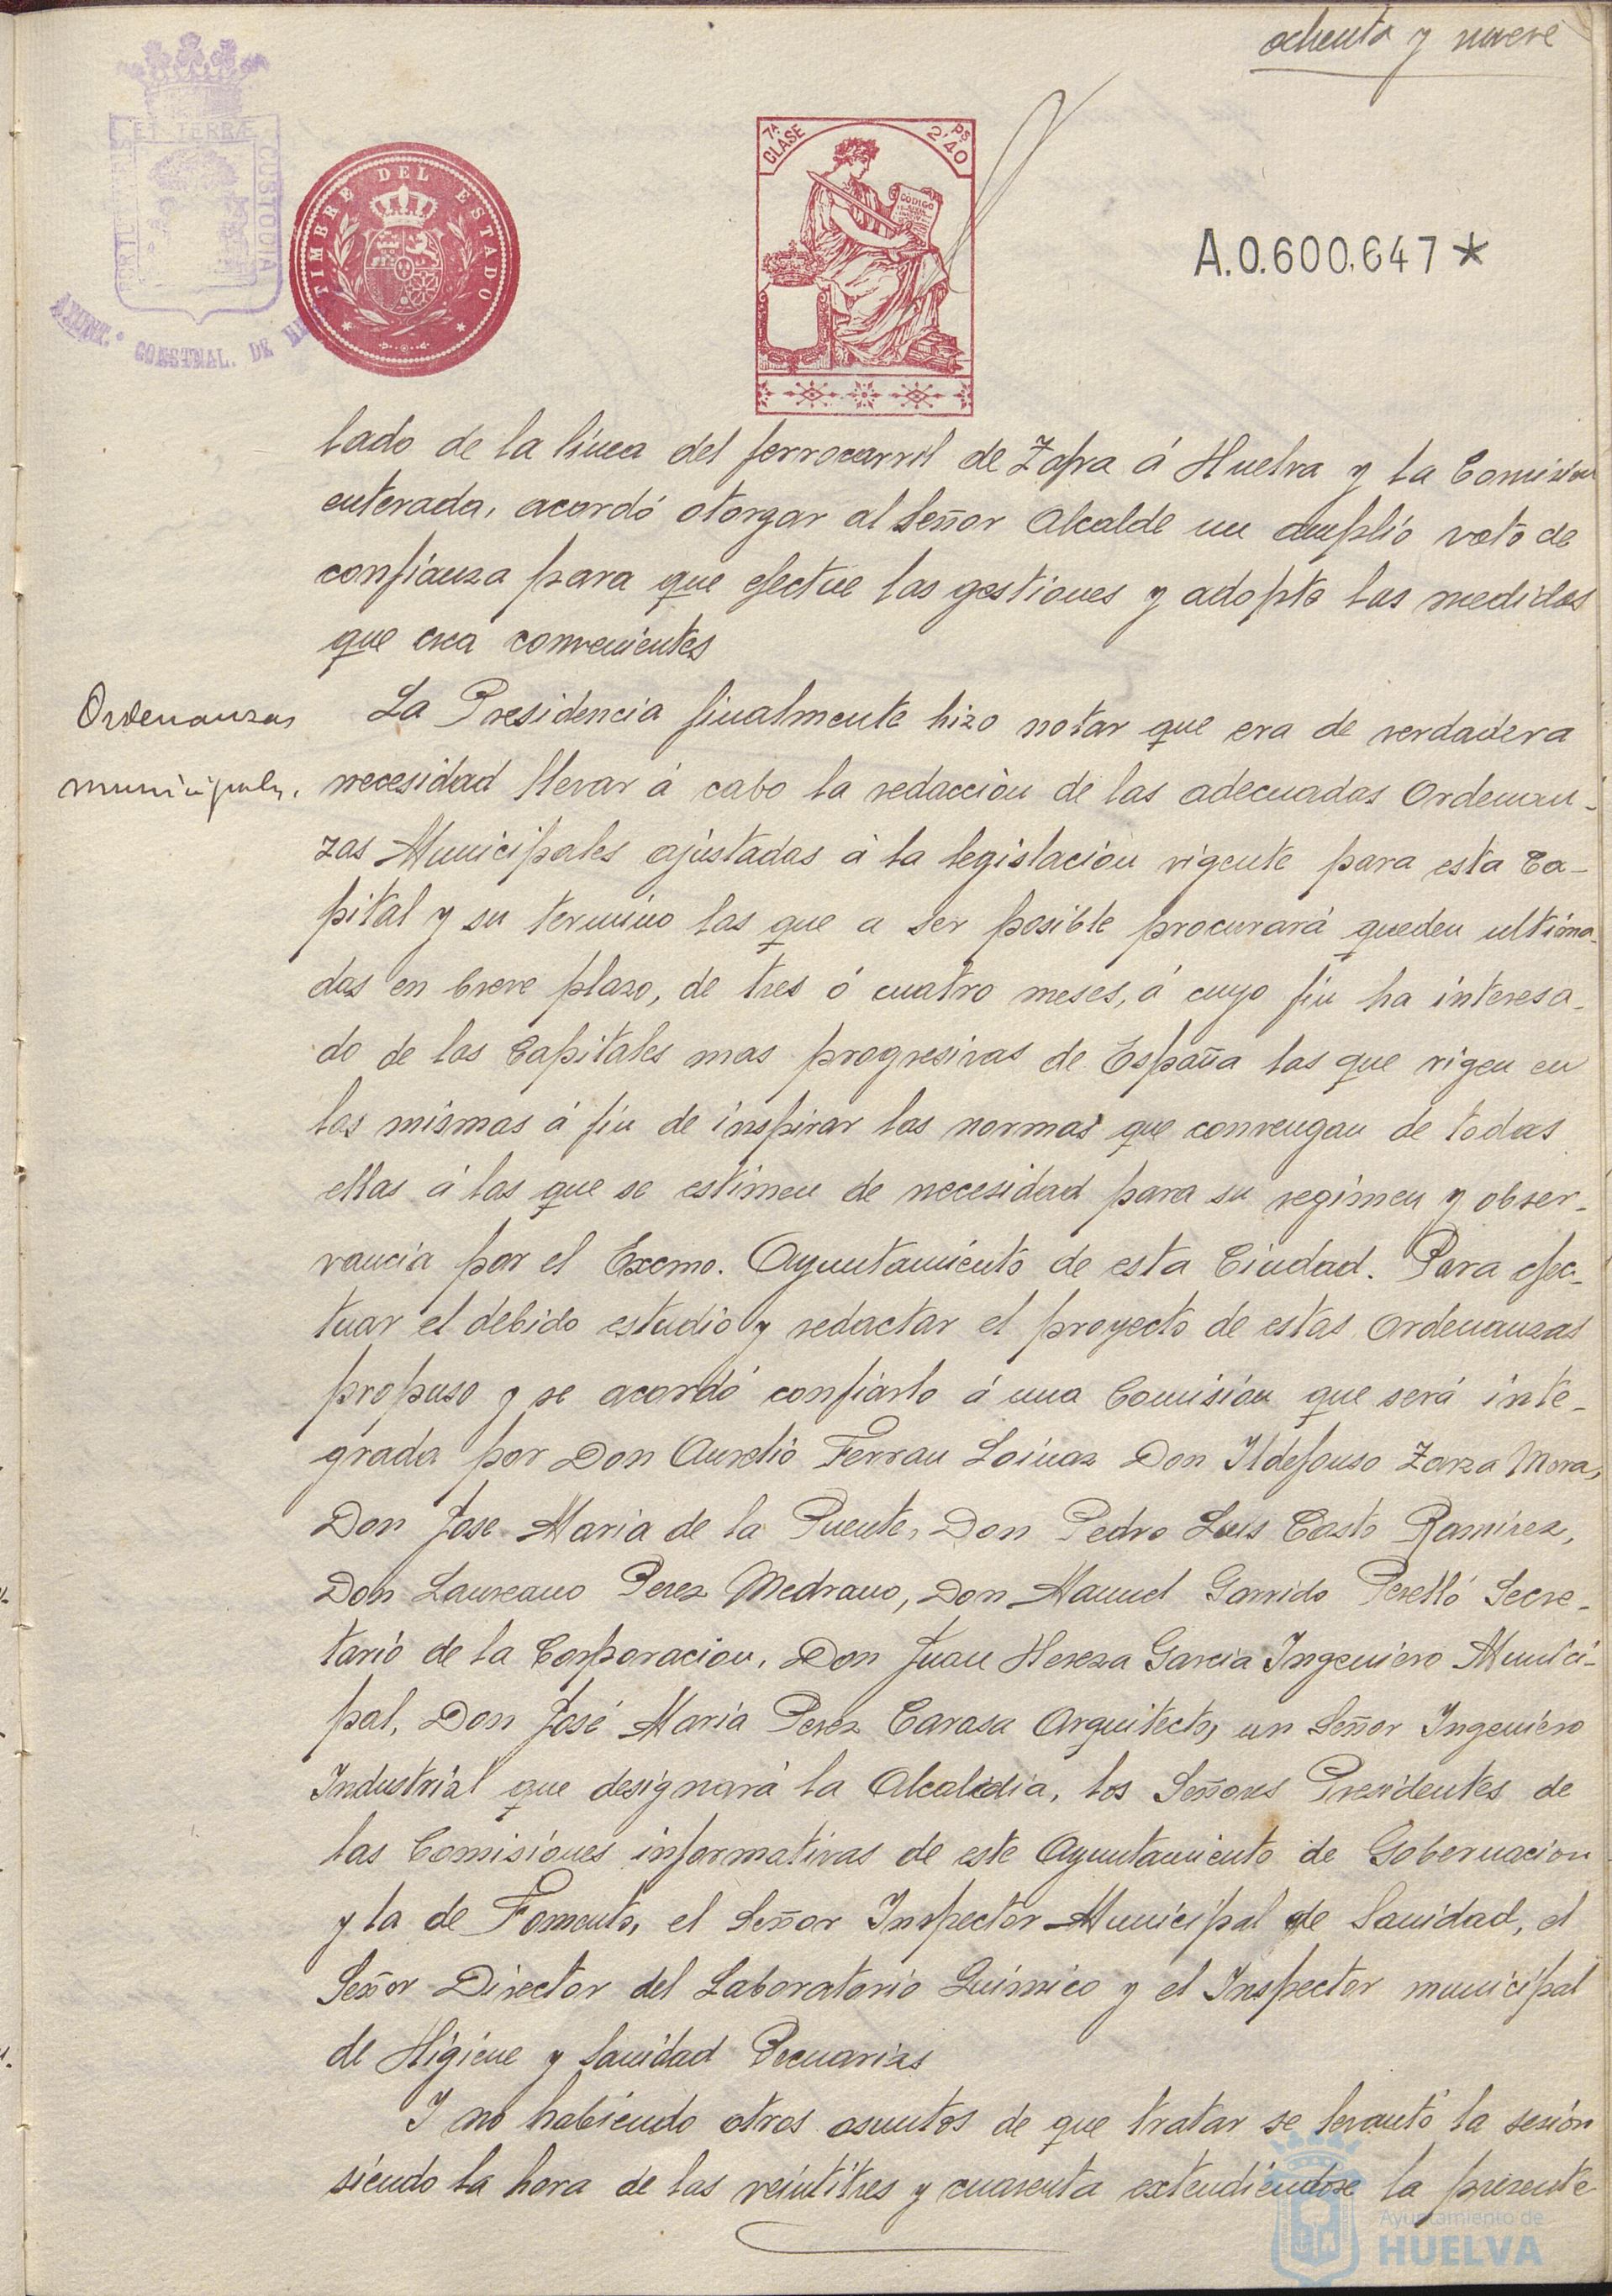 ochenta y nueve
PORTUS MARIS ET TERRÆ CUSTODIA
AYUNT.º CONSTNAL. DE
TIMBRE DEL ESTADO
7ª CLASE
2'40 PS
CODIGO
A.0.600.647*
lado de la línea del ferrocarril de Zafra á Huelva y la Comisión
enterada, acordó otorgar al Señor Alcalde un amplio voto de
confianza para que efectue las gestiones y adopte las medidas
que crea convenientes
Ordenanzas
municipales.
La Presidencia finalmente hizo notar que era de verdadera
necesidad llevar á cabo la redacción de las adecuadas Ordenan-
zas Municipales ajustadas á la legislación vigente para esta Ca-
pital y su termino las que a ser posible procurará queden ultima-
das en breve plazo, de tres ó cuatro meses, á cuyo fin ha interesa-
do de las Capitales mas progresivas de España las que rigen en
las mismas á fin de inspirar las normas que convengan de todas
ellas á las que se estimen de necesidad para su regimen y obser-
vancia por el Excmo. Ayuntamiento de esta Ciudad. Para efec-
tuar el debido estudio y redactar el proyecto de estas Ordenanzas
propuso y se acordó confiarlo á una Comisión que será inte-
grada por Don Aurelio Ferran Loinaz Don Ildefonso Zarza Mora,
Don Jose Maria de la Puente, Don Pedro Luis Casto Ramirez,
Don Laureano Perez Medrano, Don Manuel Garrido Perelló Secre-
tario de la Corporacion, Don Juan Hereza Garcia Ingeniero Munici-
pal, Don José María Perez Carasa Arquitecto, un Señor Ingeniero
Industrial que designará la Alcaldia, los Señores Presidentes de
las Comisiones informativas de este Ayuntamiento de Gobernacion
y la de Fomento, el Señor Inspector Municipal de Sanidad, el
Señor Director del Laboratorio Químico y el Inspector municipal
de Higiene y Sanidad Pecuarias
Y no habiendo otros asuntos de que tratar se levantó la sesión
siendo la hora de las veintitres y cuarenta extendiendose la presente
Ayuntamiento de
HUELVA